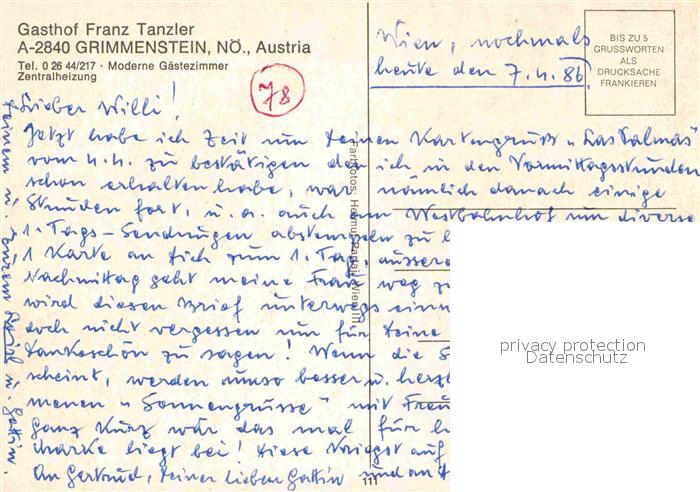 Gasthof Franz Tanzler
A-2840 GRIMMENSTEIN, NÖ., Austria
Tel. 0 26 44/217 · Moderne Gästezimmer
Zentralheizung
78
Wien, nochmals
heute den 7.4.86
BIS ZU 5
GRUSSWORTEN
ALS
DRUCKSACHE
FRANKIEREN
Lieber Willi!
Jetzt habe ich Zeit um Deinen Kartengruß "Las Palmas"
vom 4.4. zu bestätigen den ich in den Vormittagsstunden
schon erhalten habe, war nämlich danach einige
Stunden fort, u. a. auch am Westbahnhof um diverse
1. Tags-Sendungen abstempeln zu
1 Karte an Dich zum 1. Tag,
Nachmittag geht meine Frau weg
wird diesen Brief unterwegs
doch nicht vergessen um für Deine
Dankeschön zu sagen! Wenn die
scheint, werden umso besser u.
meinen "Sonnengrüsse" mit
Ganz kurz war das mal für
Marke liegt bei! Diese kriegst auf
An Gertrud, Deiner lieben Gattin und an
111
Farbfotos: Helmut
privacy protection
Datenschutz